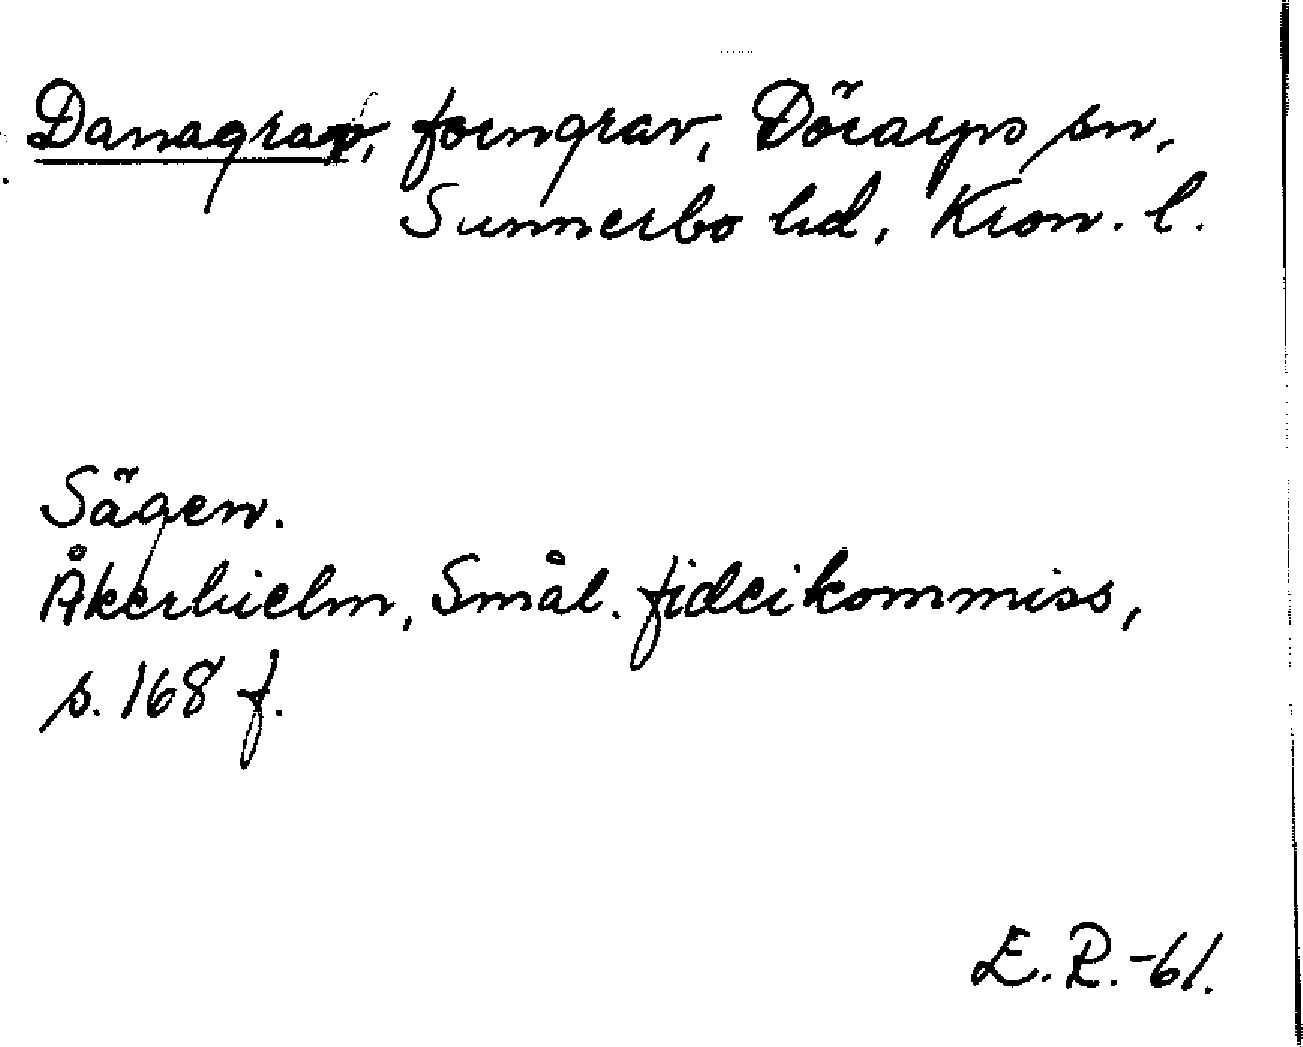 Danagrav, forngrav, Dörarps sn,
Sunnerbo hd, Kron. l.
Sägen.
Åkerhielm, Smål. fideikommiss,
s. 168 f.
E. R. -61.